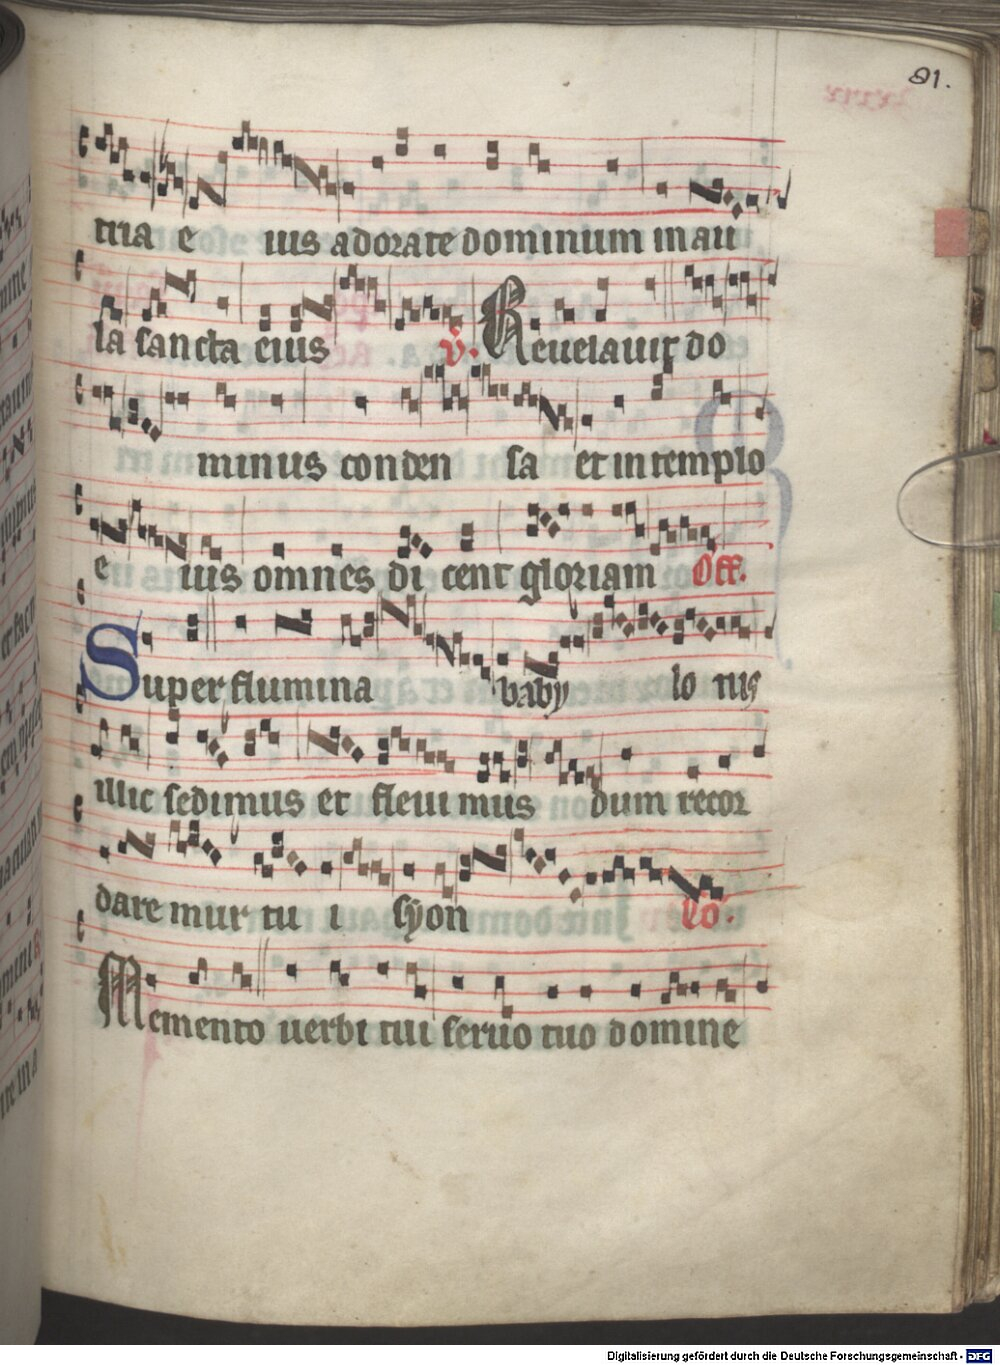 91.
tria e ius adorate dominum in au
la sancta eius v. Reuelauit do
minus conden sa et in templo
e ius omnes di cent gloriam Off.
Super flumina baby lo nis
illic sedimus et fleui mus dum recor
dare mur tu i syon Co.
Memento uerbi tui seruo tuo domine
Digitalisierung gefördert durch die Deutsche Forschungsgemeinschaft - DFG